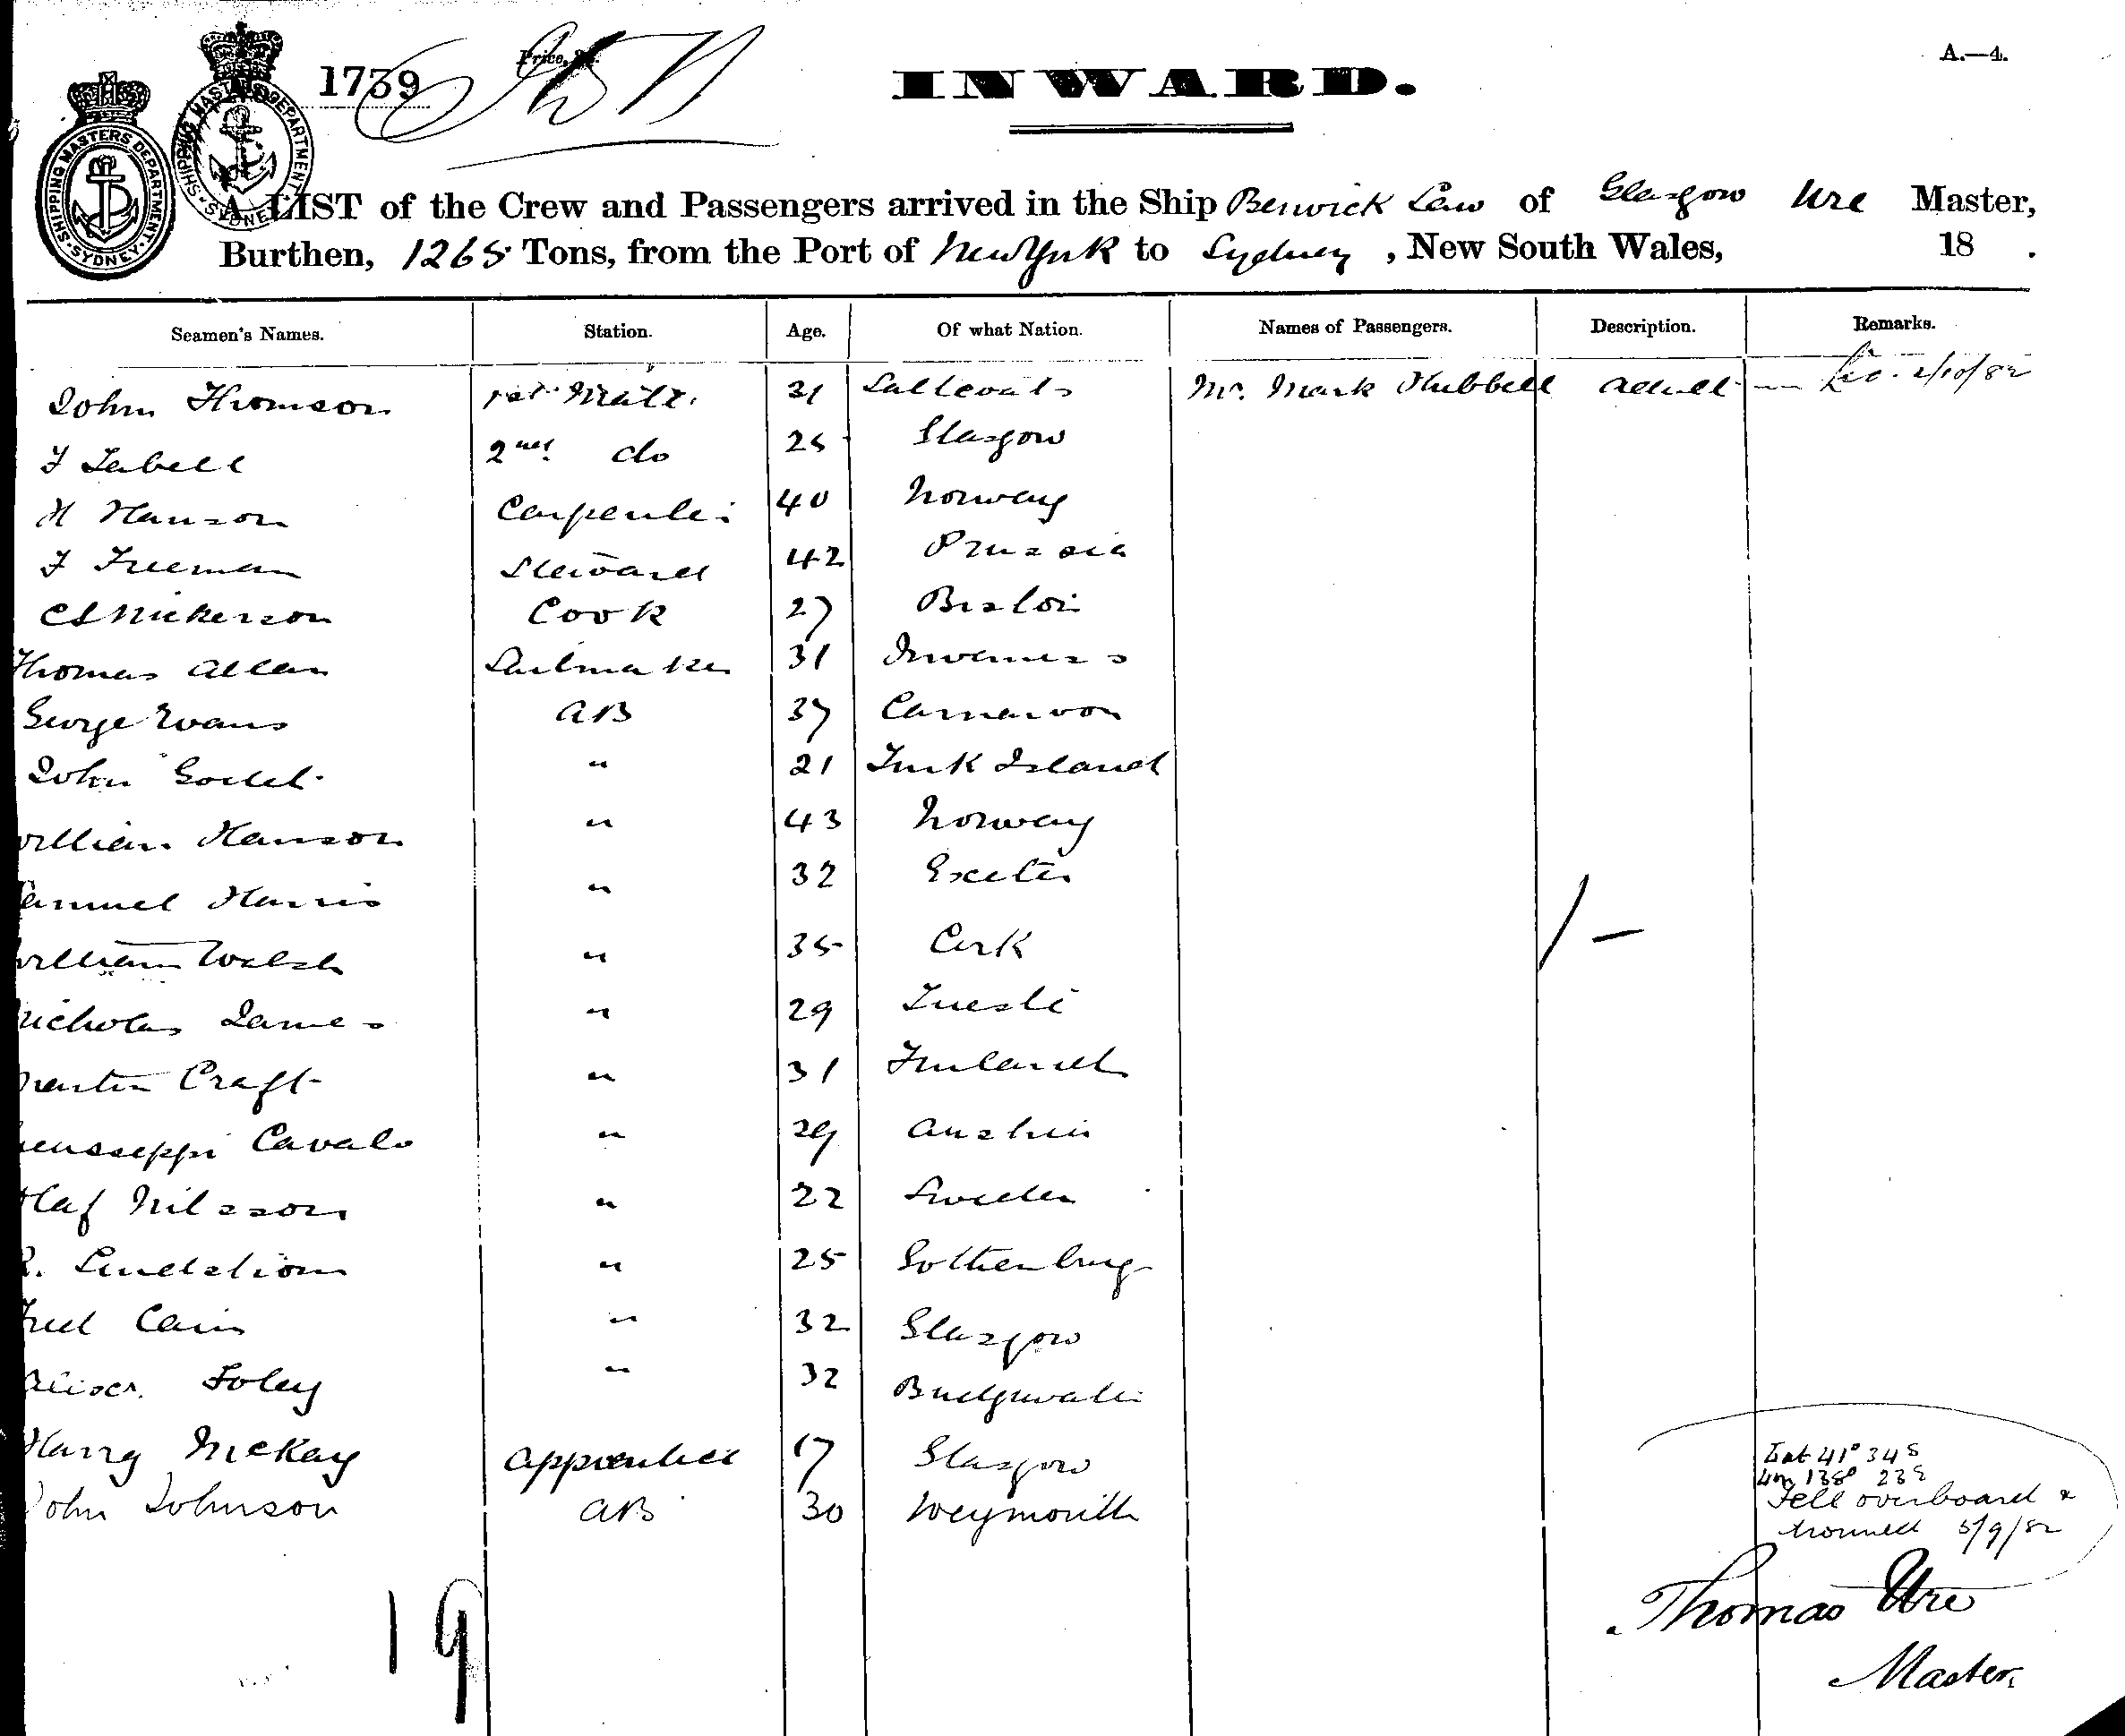 A.—4.
1739
INWARD.
SHIPPING MASTERS DEPARTMENT SYDNEY
SHIPPING MASTERS DEPARTMENT SYDNEY
A LIST of the Crew and Passengers arrived in the Ship Berwick Law of Glasgow Ure Master,
Burthen, 1265 Tons, from the Port of New York to Sydney, New South Wales, 18 .
Seamen's Names. Station. Age. Of what Nation. Names of Passengers. Description. Remarks.
John Thomson 1st Mate 31 Saltcoats Mr. Mark Hubbell adult 2/10/82
2nd do 25 Glasgow
H Hanson Carpenter 40 Norway
F Freeman Steward 42 Prussia
Nickerson Cook 27
Thomas Allan Sailmaker 31 Inverness
George Evans AB 37 Carnarvon
John " 21 Turk Island
William Hanson " 43 Norway
Samuel Harris " 32 Exeter
William Walsh " 35 Cork
Nicholas James " 29
Martin Craft " 31 Finland
Cavalo " 29 Austria
Olaf Nilsson " 22 Sweden
Lindstrom " 25 Gothenburg
Fred Cain " 32 Glasgow
Foley " 32 Bridgwater
Harry McKay apprentice 17 Glasgow
John Johnson AB 30 Weymouth
Lat 41° 34 S
Lon 138° 23 E
Fell overboard &
drowned 5/9/82
Thomas Ure
Master
19